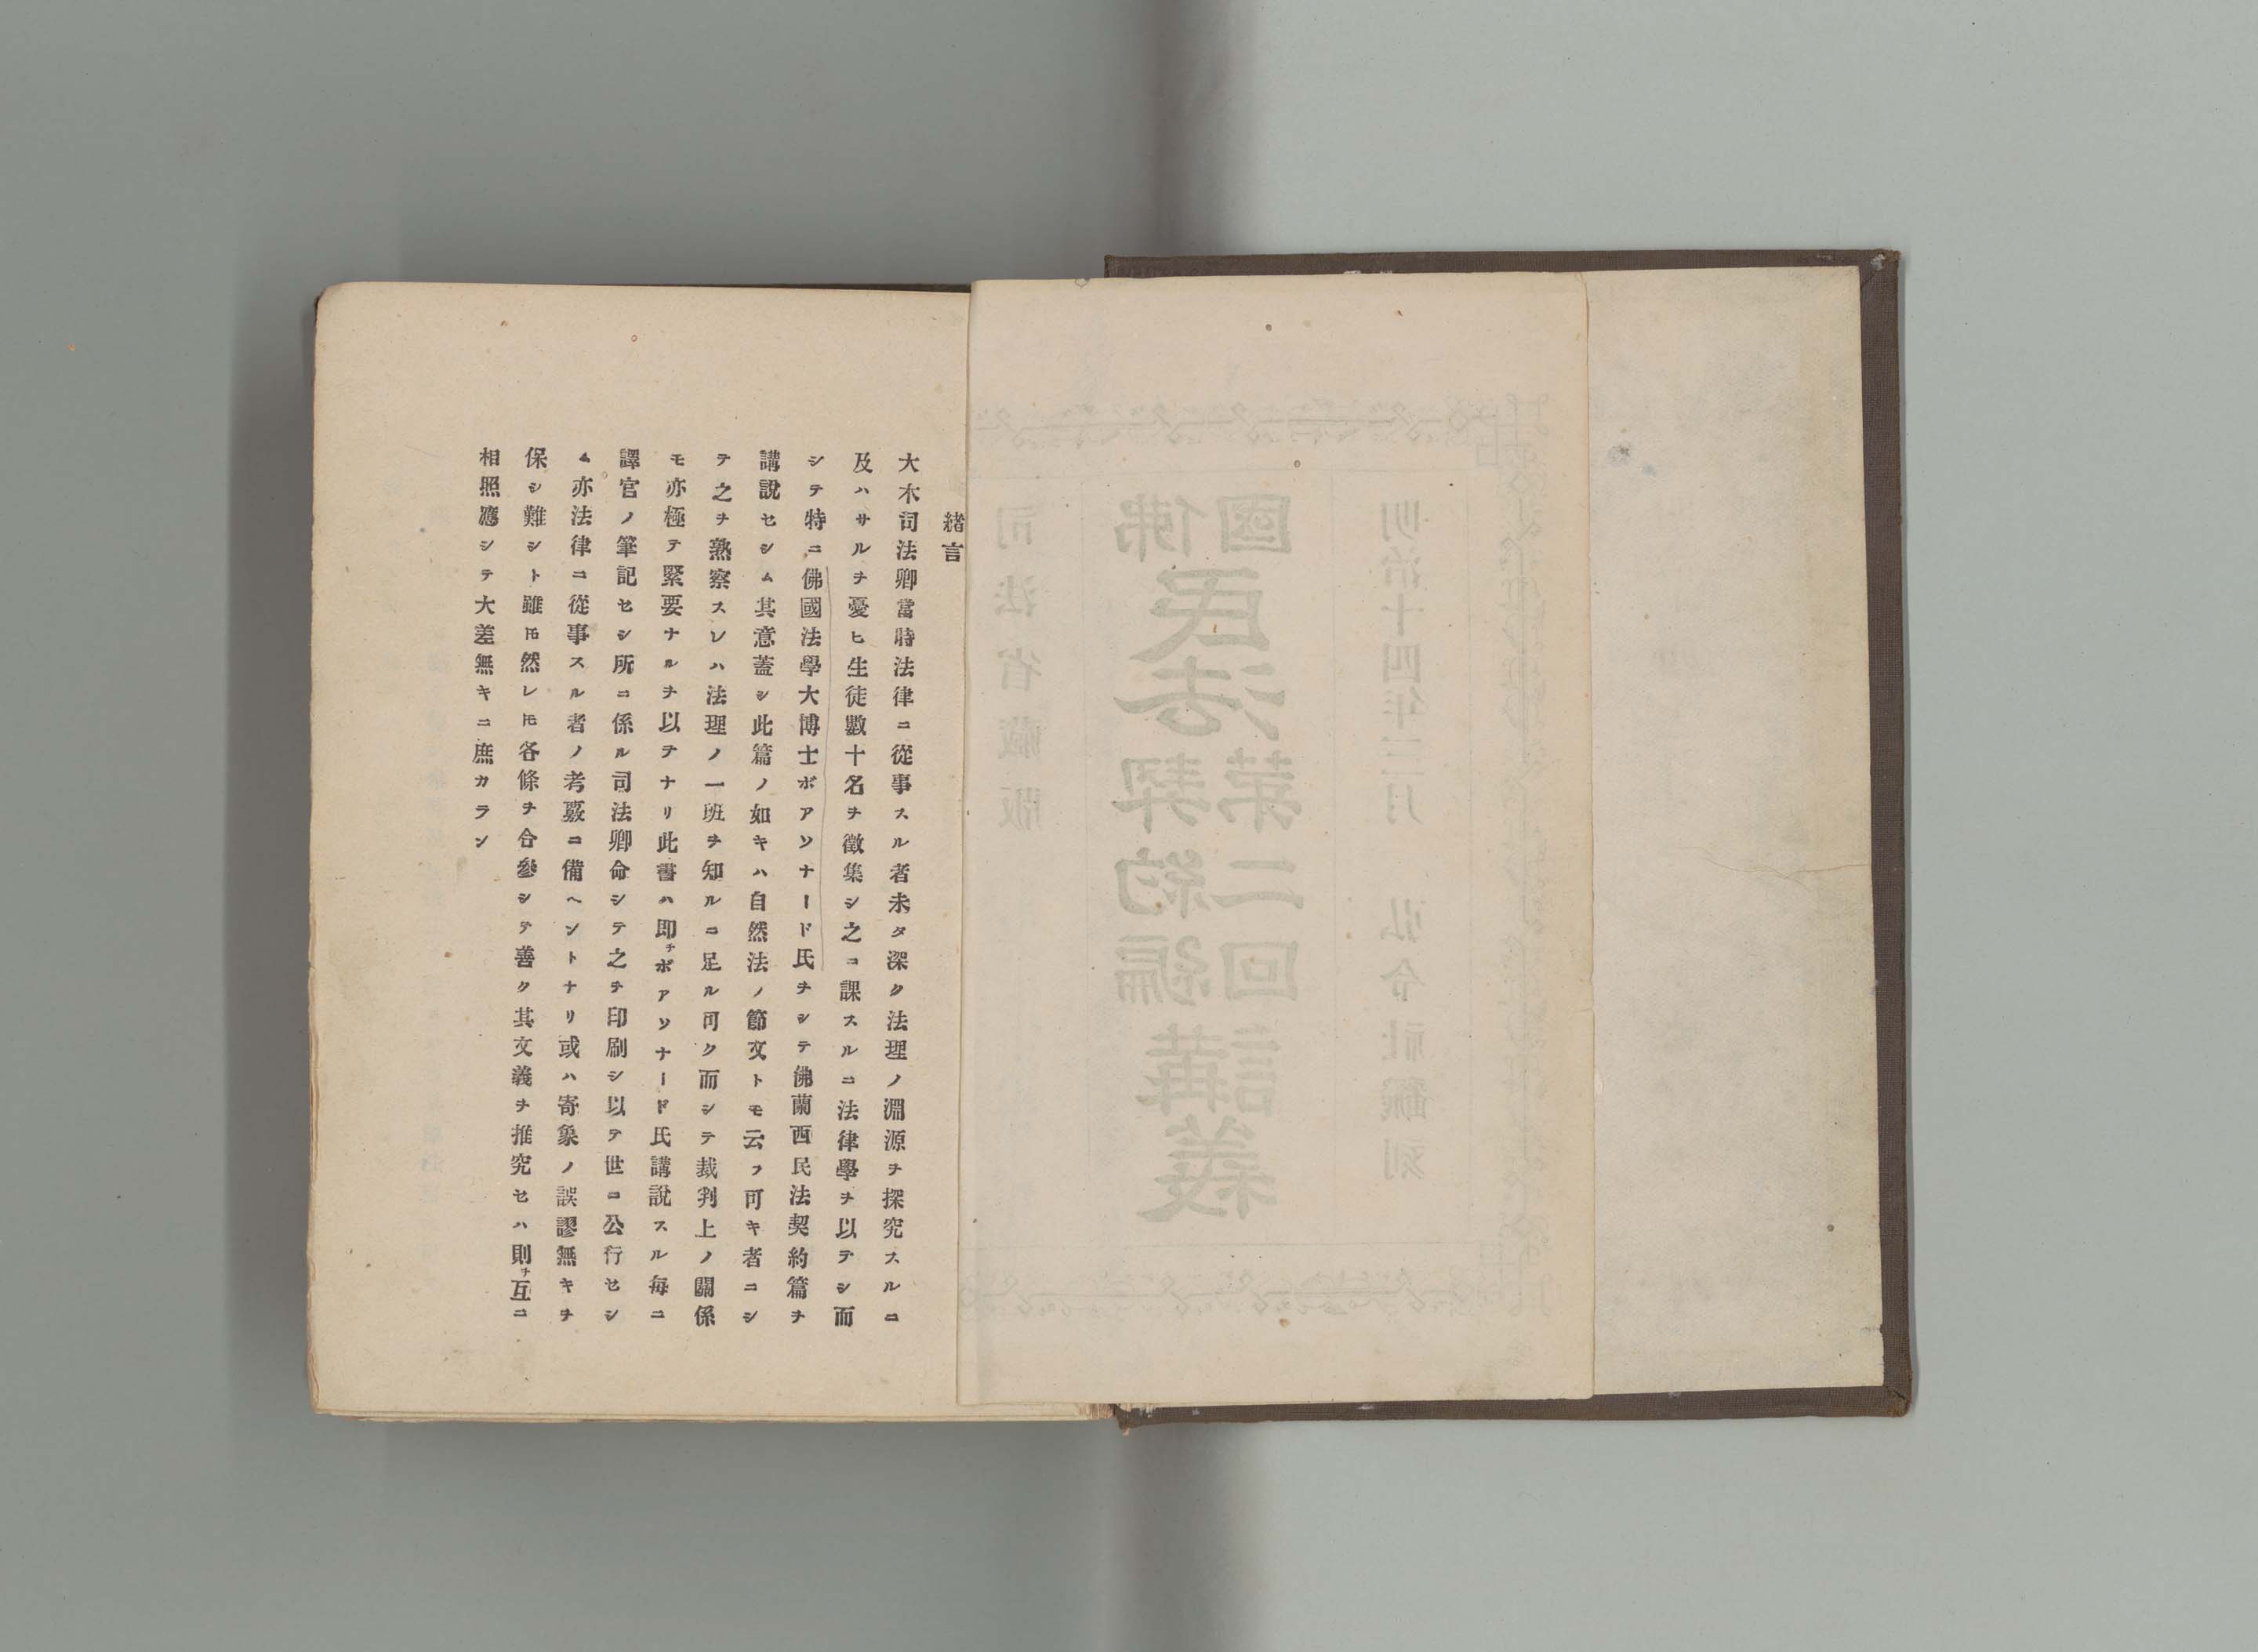 明治十四年三月　弘令社飜刻
佛國民法契約編第二回講義
司法省藏版
緒言
大木司法卿當時法律ニ從事スル者未タ深ク法理ノ淵源ヲ探究スルニ
及ハサルヲ憂ヒ生徒數十名ヲ徵集シ之ニ課スルニ法律學ヲ以テシ而
シテ特ニ佛國法學大博士ボアソナード氏ヲシテ佛蘭西民法契約篇ヲ
講說セシム其意蓋シ此篇ノ如キハ自然法ノ節文トモ云フ可キ者ニシ
テ之ヲ熟察スレハ法理ノ一班ヲ知ルニ足ル可ク而シテ裁判上ノ關係
モ亦極テ緊要ナルヲ以テナリ此書ハ即チボアソナード氏講說スル每ニ
譯官ノ筆記セシ所ニ係ル司法卿命シテ之ヲ印刷シ以テ世ニ公行セシ
ム亦法律ニ從事スル者ノ考覈ニ備ヘントナリ或ハ寄象ノ誤謬無キヲ
保シ難シト雖𪜈然レ𪜈各條ヲ合參シテ善ク其文義ヲ推究セハ則チ互ニ
相照應シテ大差無キニ庶カラン